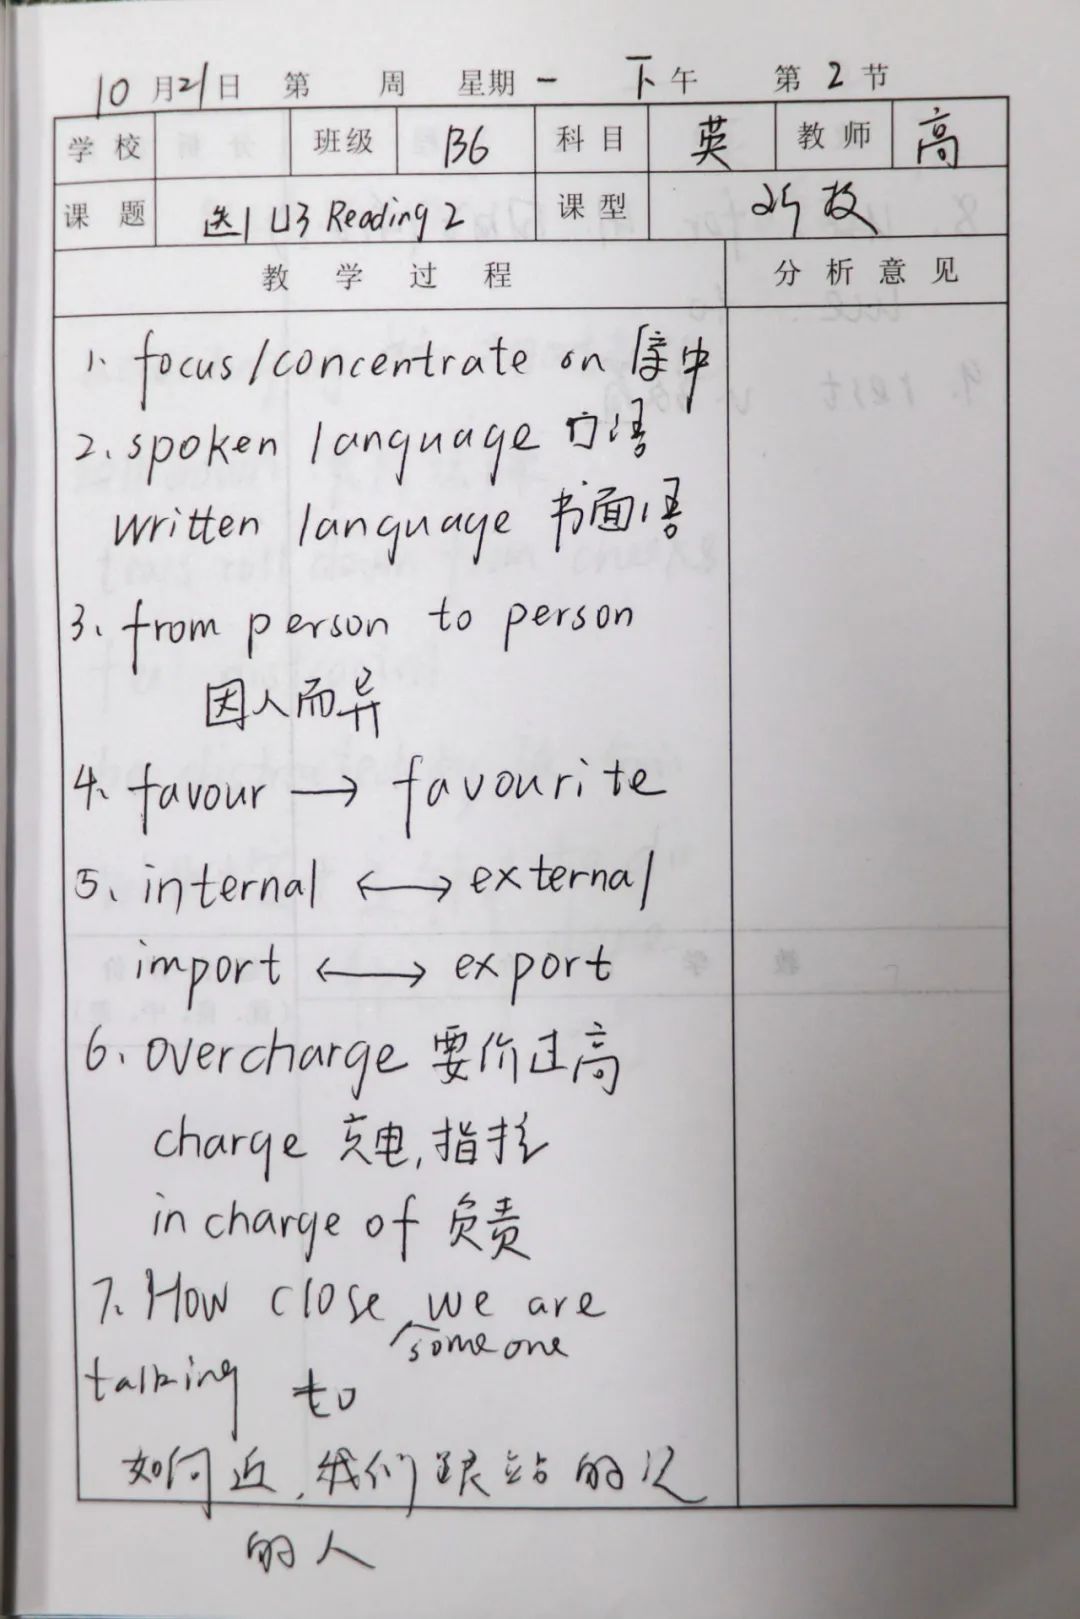 10月21日 第 周 星期一 下午 第2节
学校 班级 136 科目 英 教师 高
课题 选1 U3 Reading 2 课型 听技
教学过程 分析意见
1、focus/concentrate on 集中
2、spoken language 口语
written language 书面语
3、from person to person
因人而异
4、favour → favourite
5、internal ←→ external
import ←→ export
6、overcharge 要价过高
charge 充电,指控
in charge of 负责
7、How close we are
someone
talking to
如何近,我们跟站的近
的人